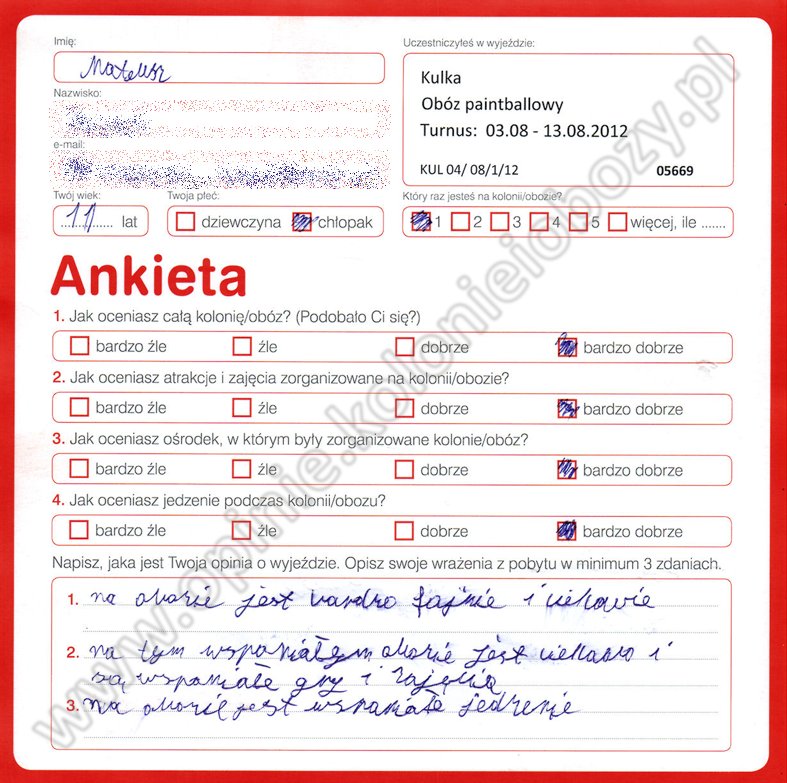 Imię:
Mateusz
Uczestniczyłeś w wyjeździe:
Kulka
Obóz paintballowy
Turnus: 03.08 - 13.08.2012
KUL 04/ 08/1/12 05669
Nazwisko:
e-mail:
Twój wiek:
11 lat
Twoja płeć:
dziewczyna chłopak
Który raz jesteś na kolonii/obozie?
1 2 3 4 5 więcej, ile .......
Ankieta
1. Jak oceniasz całą kolonię/obóz? (Podobało Ci się?)
bardzo źle źle dobrze bardzo dobrze
2. Jak oceniasz atrakcje i zajęcia zorganizowane na kolonii/obozie?
bardzo źle źle dobrze bardzo dobrze
3. Jak oceniasz ośrodek, w którym były zorganizowane kolonie/obóz?
bardzo źle źle dobrze bardzo dobrze
4. Jak oceniasz jedzenie podczas kolonii/obozu?
bardzo źle źle dobrze bardzo dobrze
Napisz, jaka jest Twoja opinia o wyjeździe. Opisz swoje wrażenia z pobytu w minimum 3 zdaniach.
1. na obozie jest bardzo fajnie i ciekawie
2. na tym wspaniałym obozie jest ciekawo i
są wspaniałe gry i zajęcia
3. na obozie jest wspaniałe jedzenie
www.opinie.kolonieiobozy.pl